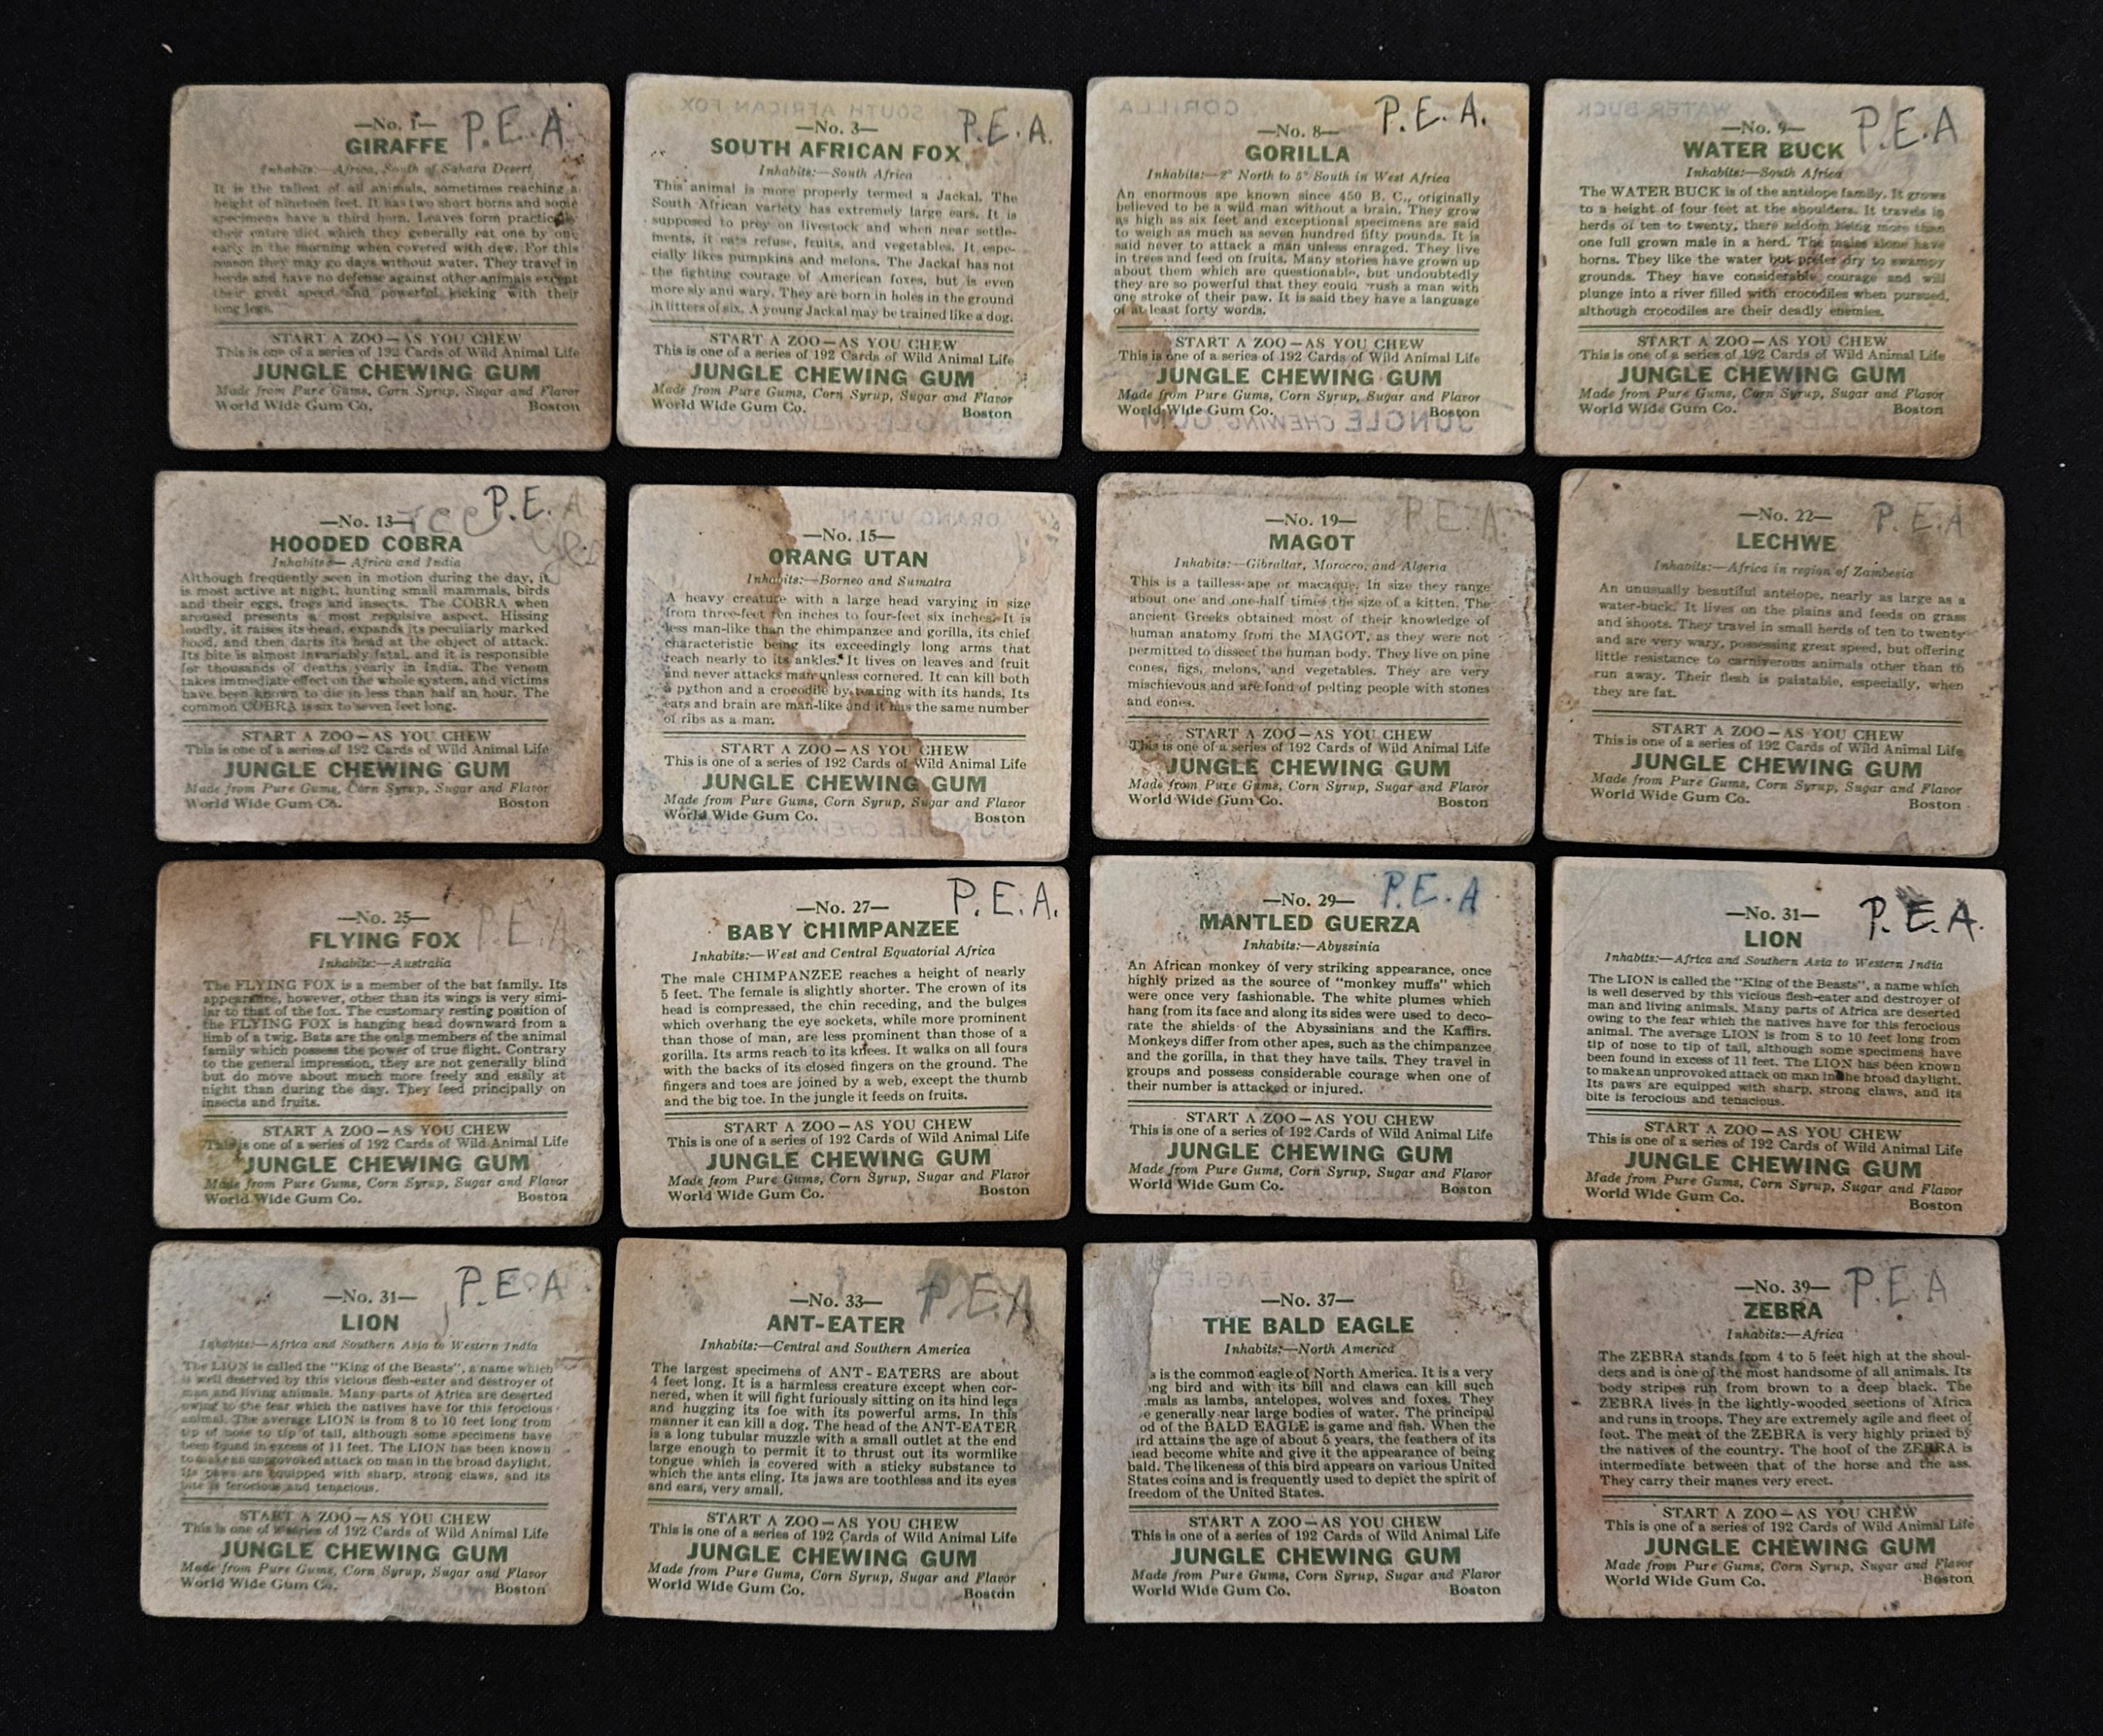 —No. 1—
P.E.A.
GIRAFFE
Inhabits:—Africa, South of Sahara Desert
It is the tallest of all animals, sometimes reaching a
height of nineteen feet. It has two short horns and some
specimens have a third horn. Leaves form practically
their entire diet which they generally eat one by one
early in the morning when covered with dew. For this
reason they may go days without water. They travel in
herds and have no defense against other animals except
their great speed and powerful kicking with their
long legs.
START A ZOO—AS YOU CHEW
This is one of a series of 192 Cards of Wild Animal Life
JUNGLE CHEWING GUM
Made from Pure Gums, Corn Syrup, Sugar and Flavor
World Wide Gum Co. Boston
SOUTH AFRICAN FOX
—No. 3—
P.E.A.
SOUTH AFRICAN FOX
Inhabits:—South Africa
This animal is more properly termed a Jackal. The
South African variety has extremely large ears. It is
supposed to prey on livestock and when near settle-
ments, it eats refuse, fruits, and vegetables. It espe-
cially likes pumpkins and melons. The Jackal has not
the fighting courage of American foxes, but is even
more sly and wary. They are born in holes in the ground
in litters of six. A young Jackal may be trained like a dog.
START A ZOO—AS YOU CHEW
This is one of a series of 192 Cards of Wild Animal Life
JUNGLE CHEWING GUM
Made from Pure Gums, Corn Syrup, Sugar and Flavor
World Wide Gum Co. Boston
JUNGLE CHEWING GUM
GORILLA
—No. 8—
P.E.A.
GORILLA
Inhabits:—2° North to 5° South in West Africa
An enormous ape known since 450 B. C., originally
believed to be a wild man without a brain. They grow
as high as six feet and exceptional specimens are said
to weigh as much as seven hundred fifty pounds. It is
said never to attack a man unless enraged. They live
in trees and feed on fruits. Many stories have grown up
about them which are questionable, but undoubtedly
they are so powerful that they could crush a man with
one stroke of their paw. It is said they have a language
of at least forty words.
START A ZOO—AS YOU CHEW
This is one of a series of 192 Cards of Wild Animal Life
JUNGLE CHEWING GUM
Made from Pure Gums, Corn Syrup, Sugar and Flavor
World Wide Gum Co. Boston
JUNGLE CHEWING GUM
WATER BUCK
—No. 9—
P.E.A
WATER BUCK
Inhabits:—South Africa
The WATER BUCK is of the antelope family. It grows
to a height of four feet at the shoulders. It travels in
herds of ten to twenty, there seldom being more than
one full grown male in a herd. The males alone have
horns. They like the water but prefer dry to swampy
grounds. They have considerable courage and will
plunge into a river filled with crocodiles when pursued,
although crocodiles are their deadly enemies.
START A ZOO—AS YOU CHEW
This is one of a series of 192 Cards of Wild Animal Life
JUNGLE CHEWING GUM
Made from Pure Gums, Corn Syrup, Sugar and Flavor
World Wide Gum Co. Boston
—No. 13—
P.E.A
HOODED COBRA
Inhabits—Africa and India
Although frequently seen in motion during the day, it
is most active at night, hunting small mammals, birds
and their eggs, frogs and insects. The COBRA when
aroused presents a most repulsive aspect. Hissing
loudly, it raises its head, expands its peculiarly marked
hood, and then darts its head at the object of attack.
Its bite is almost invariably fatal, and it is responsible
for thousands of deaths yearly in India. The venom
takes immediate effect on the whole system, and victims
have been known to die in less than half an hour. The
common COBRA is six to seven feet long.
START A ZOO—AS YOU CHEW
This is one of a series of 192 Cards of Wild Animal Life
JUNGLE CHEWING GUM
Made from Pure Gums, Corn Syrup, Sugar and Flavor
World Wide Gum Co. Boston
ORANG UTAN
—No. 15—
ORANG UTAN
Inhabits:—Borneo and Sumatra
A heavy creature with a large head varying in size
from three-feet ten inches to four-feet six inches. It is
less man-like than the chimpanzee and gorilla, its chief
characteristic being its exceedingly long arms that
reach nearly to its ankles. It lives on leaves and fruit
and never attacks man unless cornered. It can kill both
a python and a crocodile by tearing with its hands. Its
ears and brain are man-like and it has the same number
of ribs as a man.
START A ZOO—AS YOU CHEW
This is one of a series of 192 Cards of Wild Animal Life
JUNGLE CHEWING GUM
Made from Pure Gums, Corn Syrup, Sugar and Flavor
World Wide Gum Co. Boston
JUNGLE CHEWING GUM
—No. 19—
P.E.A
MAGOT
Inhabits:—Gibraltar, Morocco, and Algeria
This is a tailless ape or macaque. In size they range
about one and one-half times the size of a kitten. The
ancient Greeks obtained most of their knowledge of
human anatomy from the MAGOT, as they were not
permitted to dissect the human body. They live on pine
cones, figs, melons, and vegetables. They are very
mischievous and are fond of pelting people with stones
and cones.
START A ZOO—AS YOU CHEW
This is one of a series of 192 Cards of Wild Animal Life
JUNGLE CHEWING GUM
Made from Pure Gums, Corn Syrup, Sugar and Flavor
World Wide Gum Co. Boston
—No. 22—
P.E.A
LECHWE
Inhabits:—Africa in region of Zambesia
An unusually beautiful antelope, nearly as large as a
water-buck. It lives on the plains and feeds on grass
and shoots. They travel in small herds of ten to twenty
and are very wary, possessing great speed, but offering
little resistance to carniverous animals other than to
run away. Their flesh is palatable, especially, when
they are fat.
START A ZOO—AS YOU CHEW
This is one of a series of 192 Cards of Wild Animal Life
JUNGLE CHEWING GUM
Made from Pure Gums, Corn Syrup, Sugar and Flavor
World Wide Gum Co. Boston
—No. 25—
P.E.A
FLYING FOX
Inhabits:—Australia
The FLYING FOX is a member of the bat family. Its
appearance, however, other than its wings is very simi-
lar to that of the fox. The customary resting position of
the FLYING FOX is hanging head downward from a
limb of a twig. Bats are the only members of the animal
family which possess the power of true flight. Contrary
to the general impression, they are not generally blind
but do move about much more freely and easily at
night than during the day. They feed principally on
insects and fruits.
START A ZOO—AS YOU CHEW
This is one of a series of 192 Cards of Wild Animal Life
JUNGLE CHEWING GUM
Made from Pure Gums, Corn Syrup, Sugar and Flavor
World Wide Gum Co. Boston
—No. 27—
P.E.A.
BABY CHIMPANZEE
Inhabits:—West and Central Equatorial Africa
The male CHIMPANZEE reaches a height of nearly
5 feet. The female is slightly shorter. The crown of its
head is compressed, the chin receding, and the bulges
which overhang the eye sockets, while more prominent
than those of man, are less prominent than those of a
gorilla. Its arms reach to its knees. It walks on all fours
with the backs of its closed fingers on the ground. The
fingers and toes are joined by a web, except the thumb
and the big toe. In the jungle it feeds on fruits.
START A ZOO—AS YOU CHEW
This is one of a series of 192 Cards of Wild Animal Life
JUNGLE CHEWING GUM
Made from Pure Gums, Corn Syrup, Sugar and Flavor
World Wide Gum Co. Boston
—No. 29—
P.E.A
MANTLED GUERZA
Inhabits:—Abyssinia
An African monkey of very striking appearance, once
highly prized as the source of "monkey muffs" which
were once very fashionable. The white plumes which
hang from its face and along its sides were used to deco-
rate the shields of the Abyssinians and the Kaffirs.
Monkeys differ from other apes, such as the chimpanzee
and the gorilla, in that they have tails. They travel in
groups and possess considerable courage when one of
their number is attacked or injured.
START A ZOO—AS YOU CHEW
This is one of a series of 192 Cards of Wild Animal Life
JUNGLE CHEWING GUM
Made from Pure Gums, Corn Syrup, Sugar and Flavor
World Wide Gum Co. Boston
—No. 31—
P.E.A.
LION
Inhabits:—Africa and Southern Asia to Western India
The LION is called the "King of the Beasts", a name which
is well deserved by this vicious flesh-eater and destroyer of
man and living animals. Many parts of Africa are deserted
owing to the fear which the natives have for this ferocious
animal. The average LION is from 8 to 10 feet long from
tip of nose to tip of tail, although some specimens have
been found in excess of 11 feet. The LION has been known
to make an unprovoked attack on man in the broad daylight.
Its paws are equipped with sharp, strong claws, and its
bite is ferocious and tenacious.
START A ZOO—AS YOU CHEW
This is one of a series of 192 Cards of Wild Animal Life
JUNGLE CHEWING GUM
Made from Pure Gums, Corn Syrup, Sugar and Flavor
World Wide Gum Co. Boston
—No. 31—
P.E.A
LION
Inhabits:—Africa and Southern Asia to Western India
The LION is called the "King of the Beasts", a name which
is well deserved by this vicious flesh-eater and destroyer of
man and living animals. Many parts of Africa are deserted
owing to the fear which the natives have for this ferocious
animal. The average LION is from 8 to 10 feet long from
tip of nose to tip of tail, although some specimens have
been found in excess of 11 feet. The LION has been known
to make an unprovoked attack on man in the broad daylight.
Its paws are equipped with sharp, strong claws, and its
bite is ferocious and tenacious.
START A ZOO—AS YOU CHEW
This is one of a series of 192 Cards of Wild Animal Life
JUNGLE CHEWING GUM
Made from Pure Gums, Corn Syrup, Sugar and Flavor
World Wide Gum Co. Boston
—No. 33—
P.E.A
ANT-EATER
Inhabits:—Central and Southern America
The largest specimens of ANT-EATERS are about
4 feet long. It is a harmless creature except when cor-
nered, when it will fight furiously sitting on its hind legs
and hugging its foe with its powerful arms. In this
manner it can kill a dog. The head of the ANT-EATER
is a long tubular muzzle with a small outlet at the end
large enough to permit it to thrust out its wormlike
tongue which is covered with a sticky substance to
which the ants cling. Its jaws are toothless and its eyes
and ears, very small.
START A ZOO—AS YOU CHEW
This is one of a series of 192 Cards of Wild Animal Life
JUNGLE CHEWING GUM
Made from Pure Gums, Corn Syrup, Sugar and Flavor
World Wide Gum Co. Boston
—No. 37—
THE BALD EAGLE
Inhabits:—North America
is the common eagle of North America. It is a very
ong bird and with its bill and claws can kill such
mals as lambs, antelopes, wolves and foxes. They
e generally near large bodies of water. The principal
od of the BALD EAGLE is game and fish. When the
ird attains the age of about 5 years, the feathers of its
head become white and give it the appearance of being
bald. The likeness of this bird appears on various United
States coins and is frequently used to depict the spirit of
freedom of the United States.
START A ZOO—AS YOU CHEW
This is one of a series of 192 Cards of Wild Animal Life
JUNGLE CHEWING GUM
Made from Pure Gums, Corn Syrup, Sugar and Flavor
World Wide Gum Co. Boston
—No. 39—
P.E.A
ZEBRA
Inhabits:—Africa
The ZEBRA stands from 4 to 5 feet high at the shoul-
ders and is one of the most handsome of all animals. Its
body stripes run from brown to a deep black. The
ZEBRA lives in the lightly-wooded sections of Africa
and runs in troops. They are extremely agile and fleet of
foot. The meat of the ZEBRA is very highly prized by
the natives of the country. The hoof of the ZEBRA is
intermediate between that of the horse and the ass.
They carry their manes very erect.
START A ZOO—AS YOU CHEW
This is one of a series of 192 Cards of Wild Animal Life
JUNGLE CHEWING GUM
Made from Pure Gums, Corn Syrup, Sugar and Flavor
World Wide Gum Co. Boston